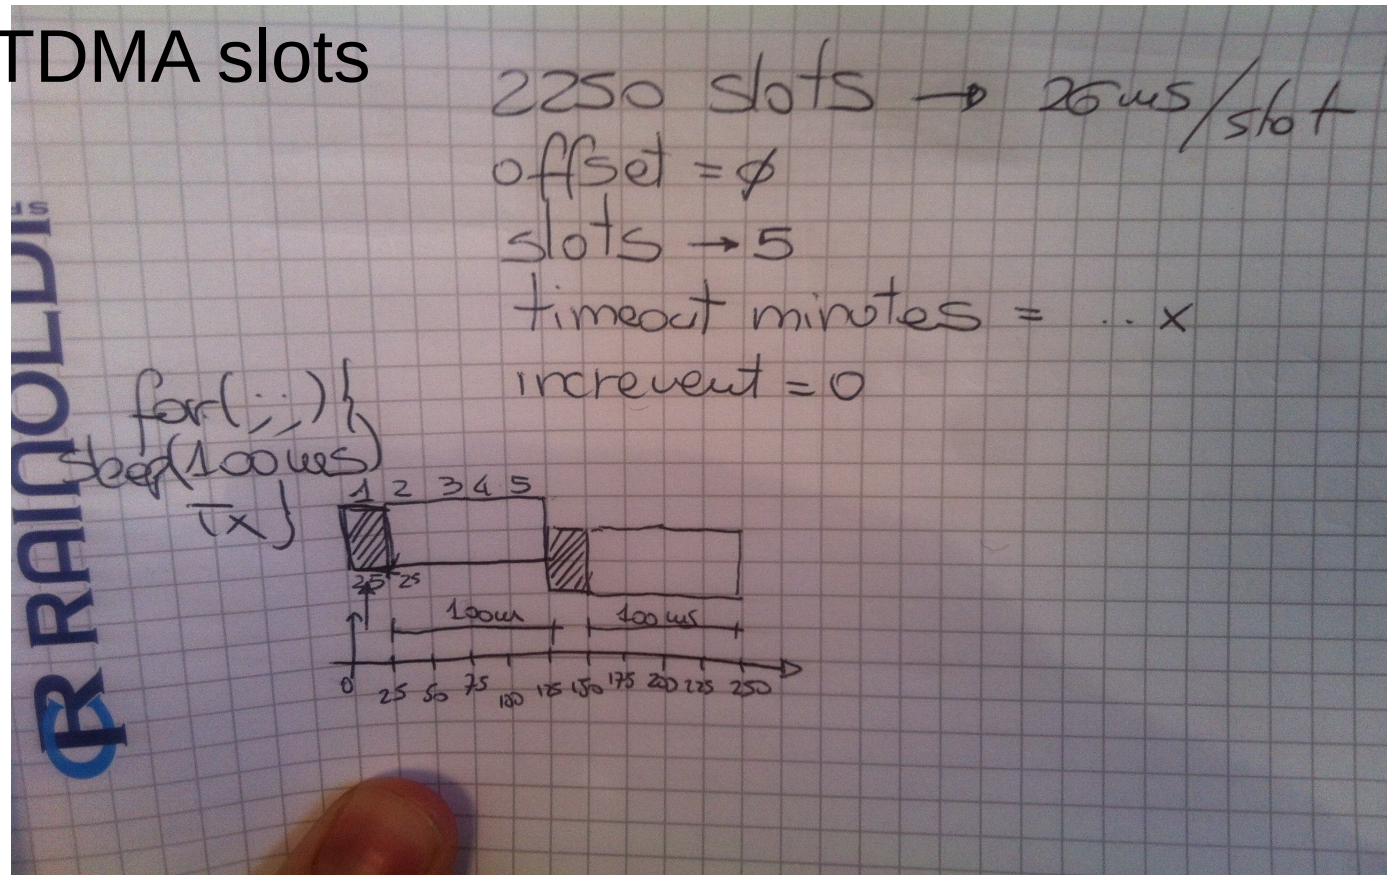 TDMA slots
2250 slots → 26ms/slot
offset = ϕ
slots → 5
timeout minutes = .. x
increment = 0
for(;;){
sleep(100ms)
Tx}
1 2 3 4 5
25 25
100m 100ms
0 25 50 75 100 125 150 175 200 225 250
RAINOLDI